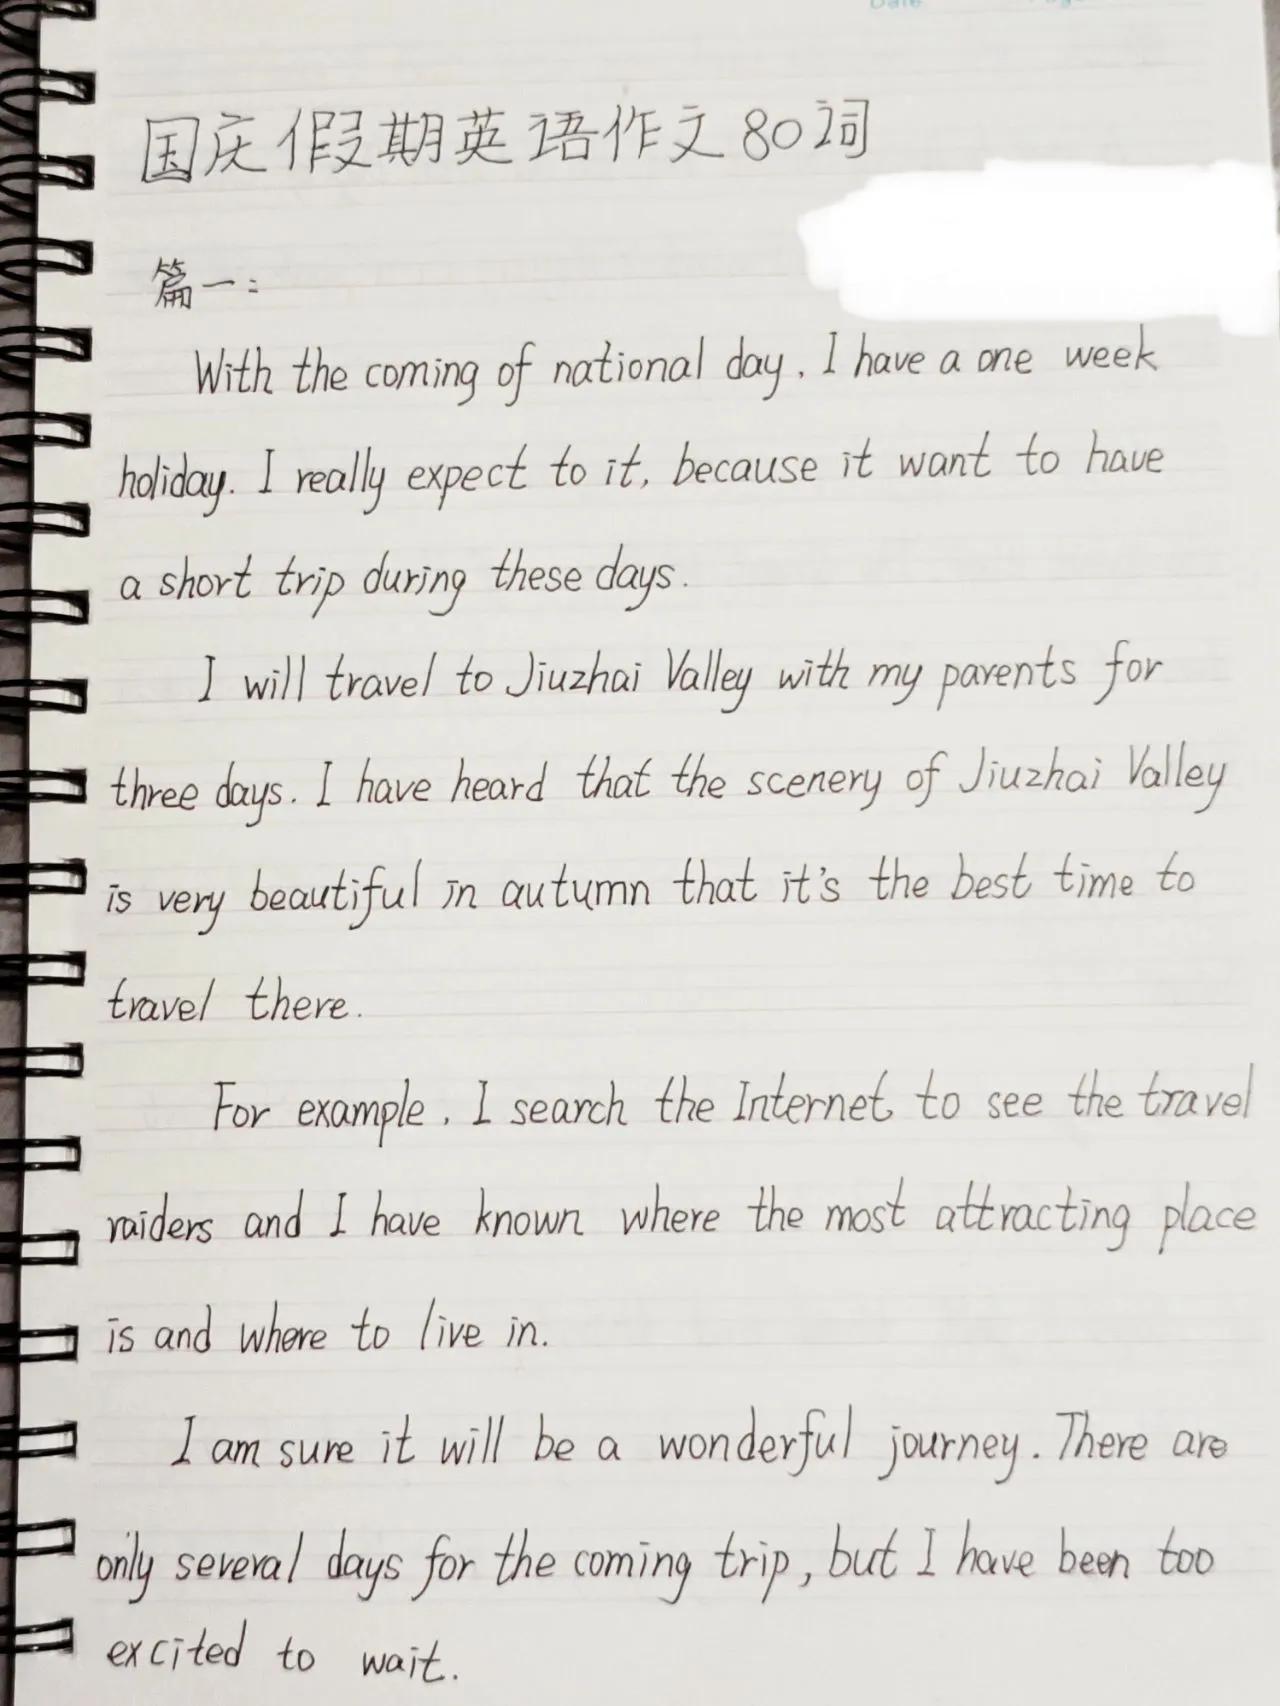 国庆假期英语作文80词
篇一:
With the coming of national day, I have a one week
holiday. I really expect to it, because it want to have
a short trip during these days.
I will travel to Jiuzhai Valley with my parents for
three days. I have heard that the scenery of Jiuzhai Valley
is very beautiful in autumn that it's the best time to
travel there.
For example, I search the Internet to see the travel
raiders and I have known where the most attracting place
is and where to live in.
I am sure it will be a wonderful journey. There are
only several days for the coming trip, but I have been too
excited to wait.